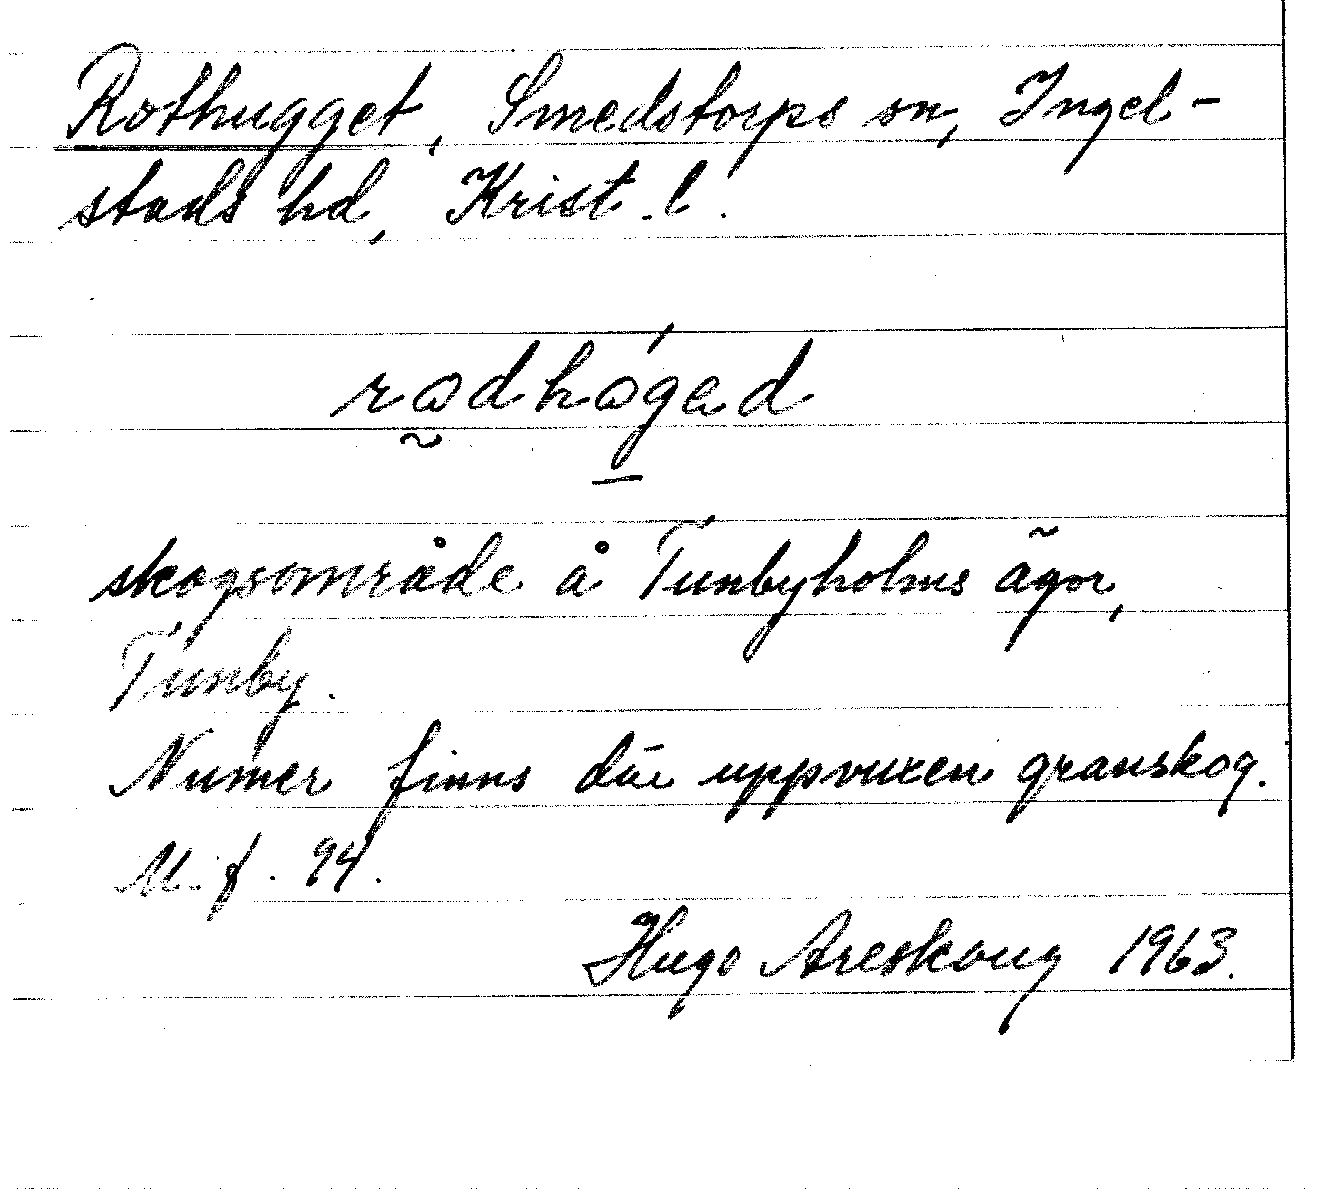 Rothugget, Smedstorps sn, Ingel-
stads hd, Krist. l.
rødhøgad
skogsområde å Tunbyholms ägor,
Tunby.
Numer finns där uppvuxen granskog.
M. f. 94.
Hugo Areskoug 1963.